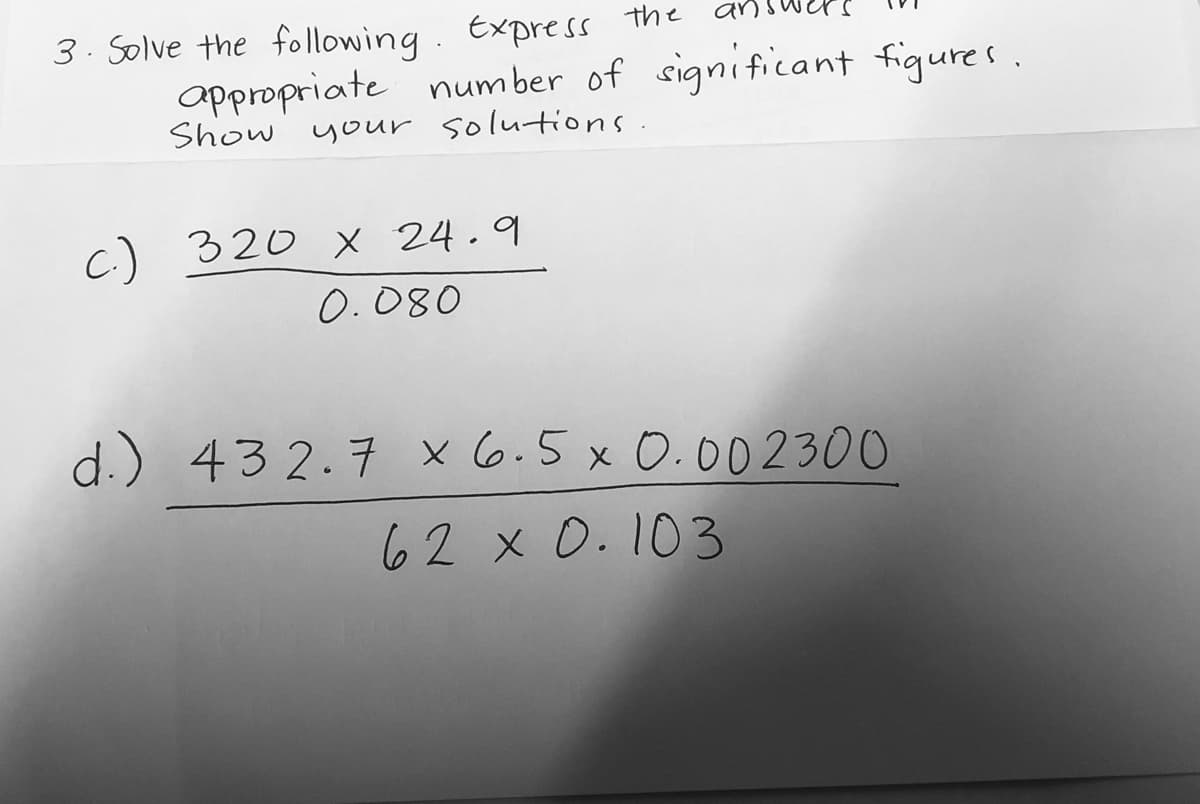 3. Solve the following. Express the answers in
appropriate number of significant figures.
Show your solutions.
c.) 320 x 24.9
0.080
d.) 432.7 x 6.5 x 0.002300
62 x 0.103